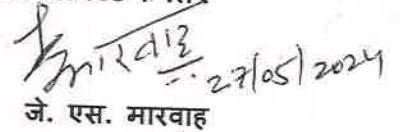 मारवाह
27/05/2024
जे. एस. मारवाह